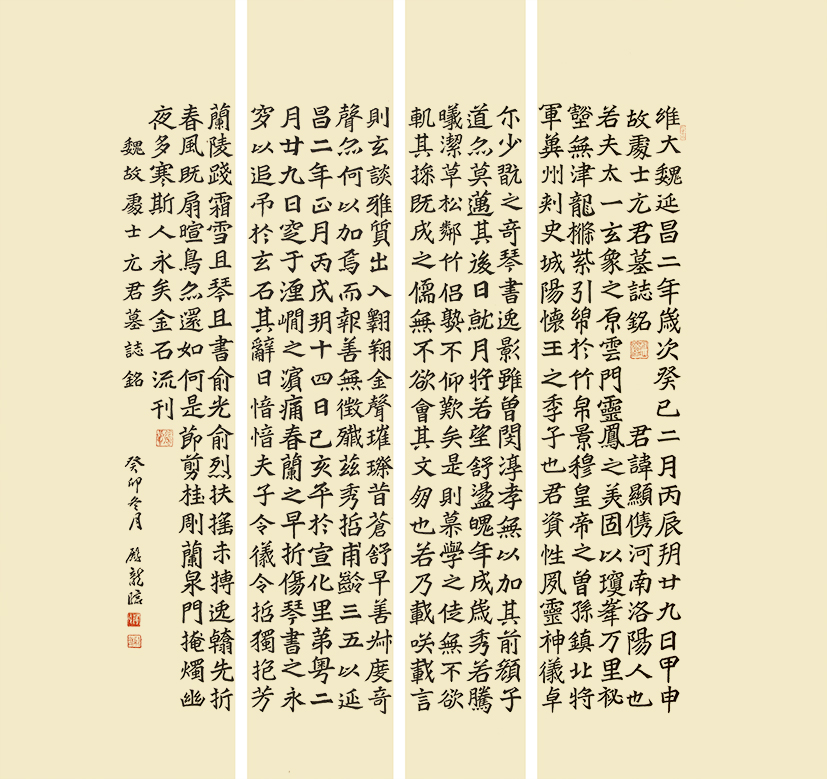 維大魏延昌二年歲次癸巳二月丙辰玥廿九日甲申
故處士元君墓誌銘 君諱顯儁河南洛陽人也
若夫太一玄象之原雲門靈鳳之美固以瓊峯万里祕
壑無津龍檦紫引綿於竹帛景穆皇帝之曾孫鎮北將
軍冀州刺史城陽懷王之季子也君資性夙靈神儀卓
尓少玩之奇琴書逸影雖曾閔淳孝無以加其前顏子
道亦莫邁其後日就月將若望舒盪魄年成歲秀若騰
曦潔草松鄰竹侶孰不仰歎矣是則慕學之徒無不欲
軌其操既成之儒無不欲會其文匆也若乃載咲載言
則玄談雅質出入翱翔金聲璀璨昔蒼舒早善叔度奇
聲亦何以加焉而報善無徵殲兹秀哲甫齡三五以延
昌二年正月丙戌玥十四日己亥卒於宣化里第粵二
月廿九日窆于瀍㵎之濱痛春蘭之早折傷琴書之永
穸以追弔於玄石其辭曰愔愔夫子令儀令哲獨抱芳
蘭陵踐霜雪且琴且書俞光俞烈扶摇未摶逸翰先折
春風既扇暄鳥亦還如何是節剪桂剛蘭泉門掩燭幽
夜多寒斯人永矣金石流刊
魏故處士元君墓誌銘 癸卯冬月 龍臨